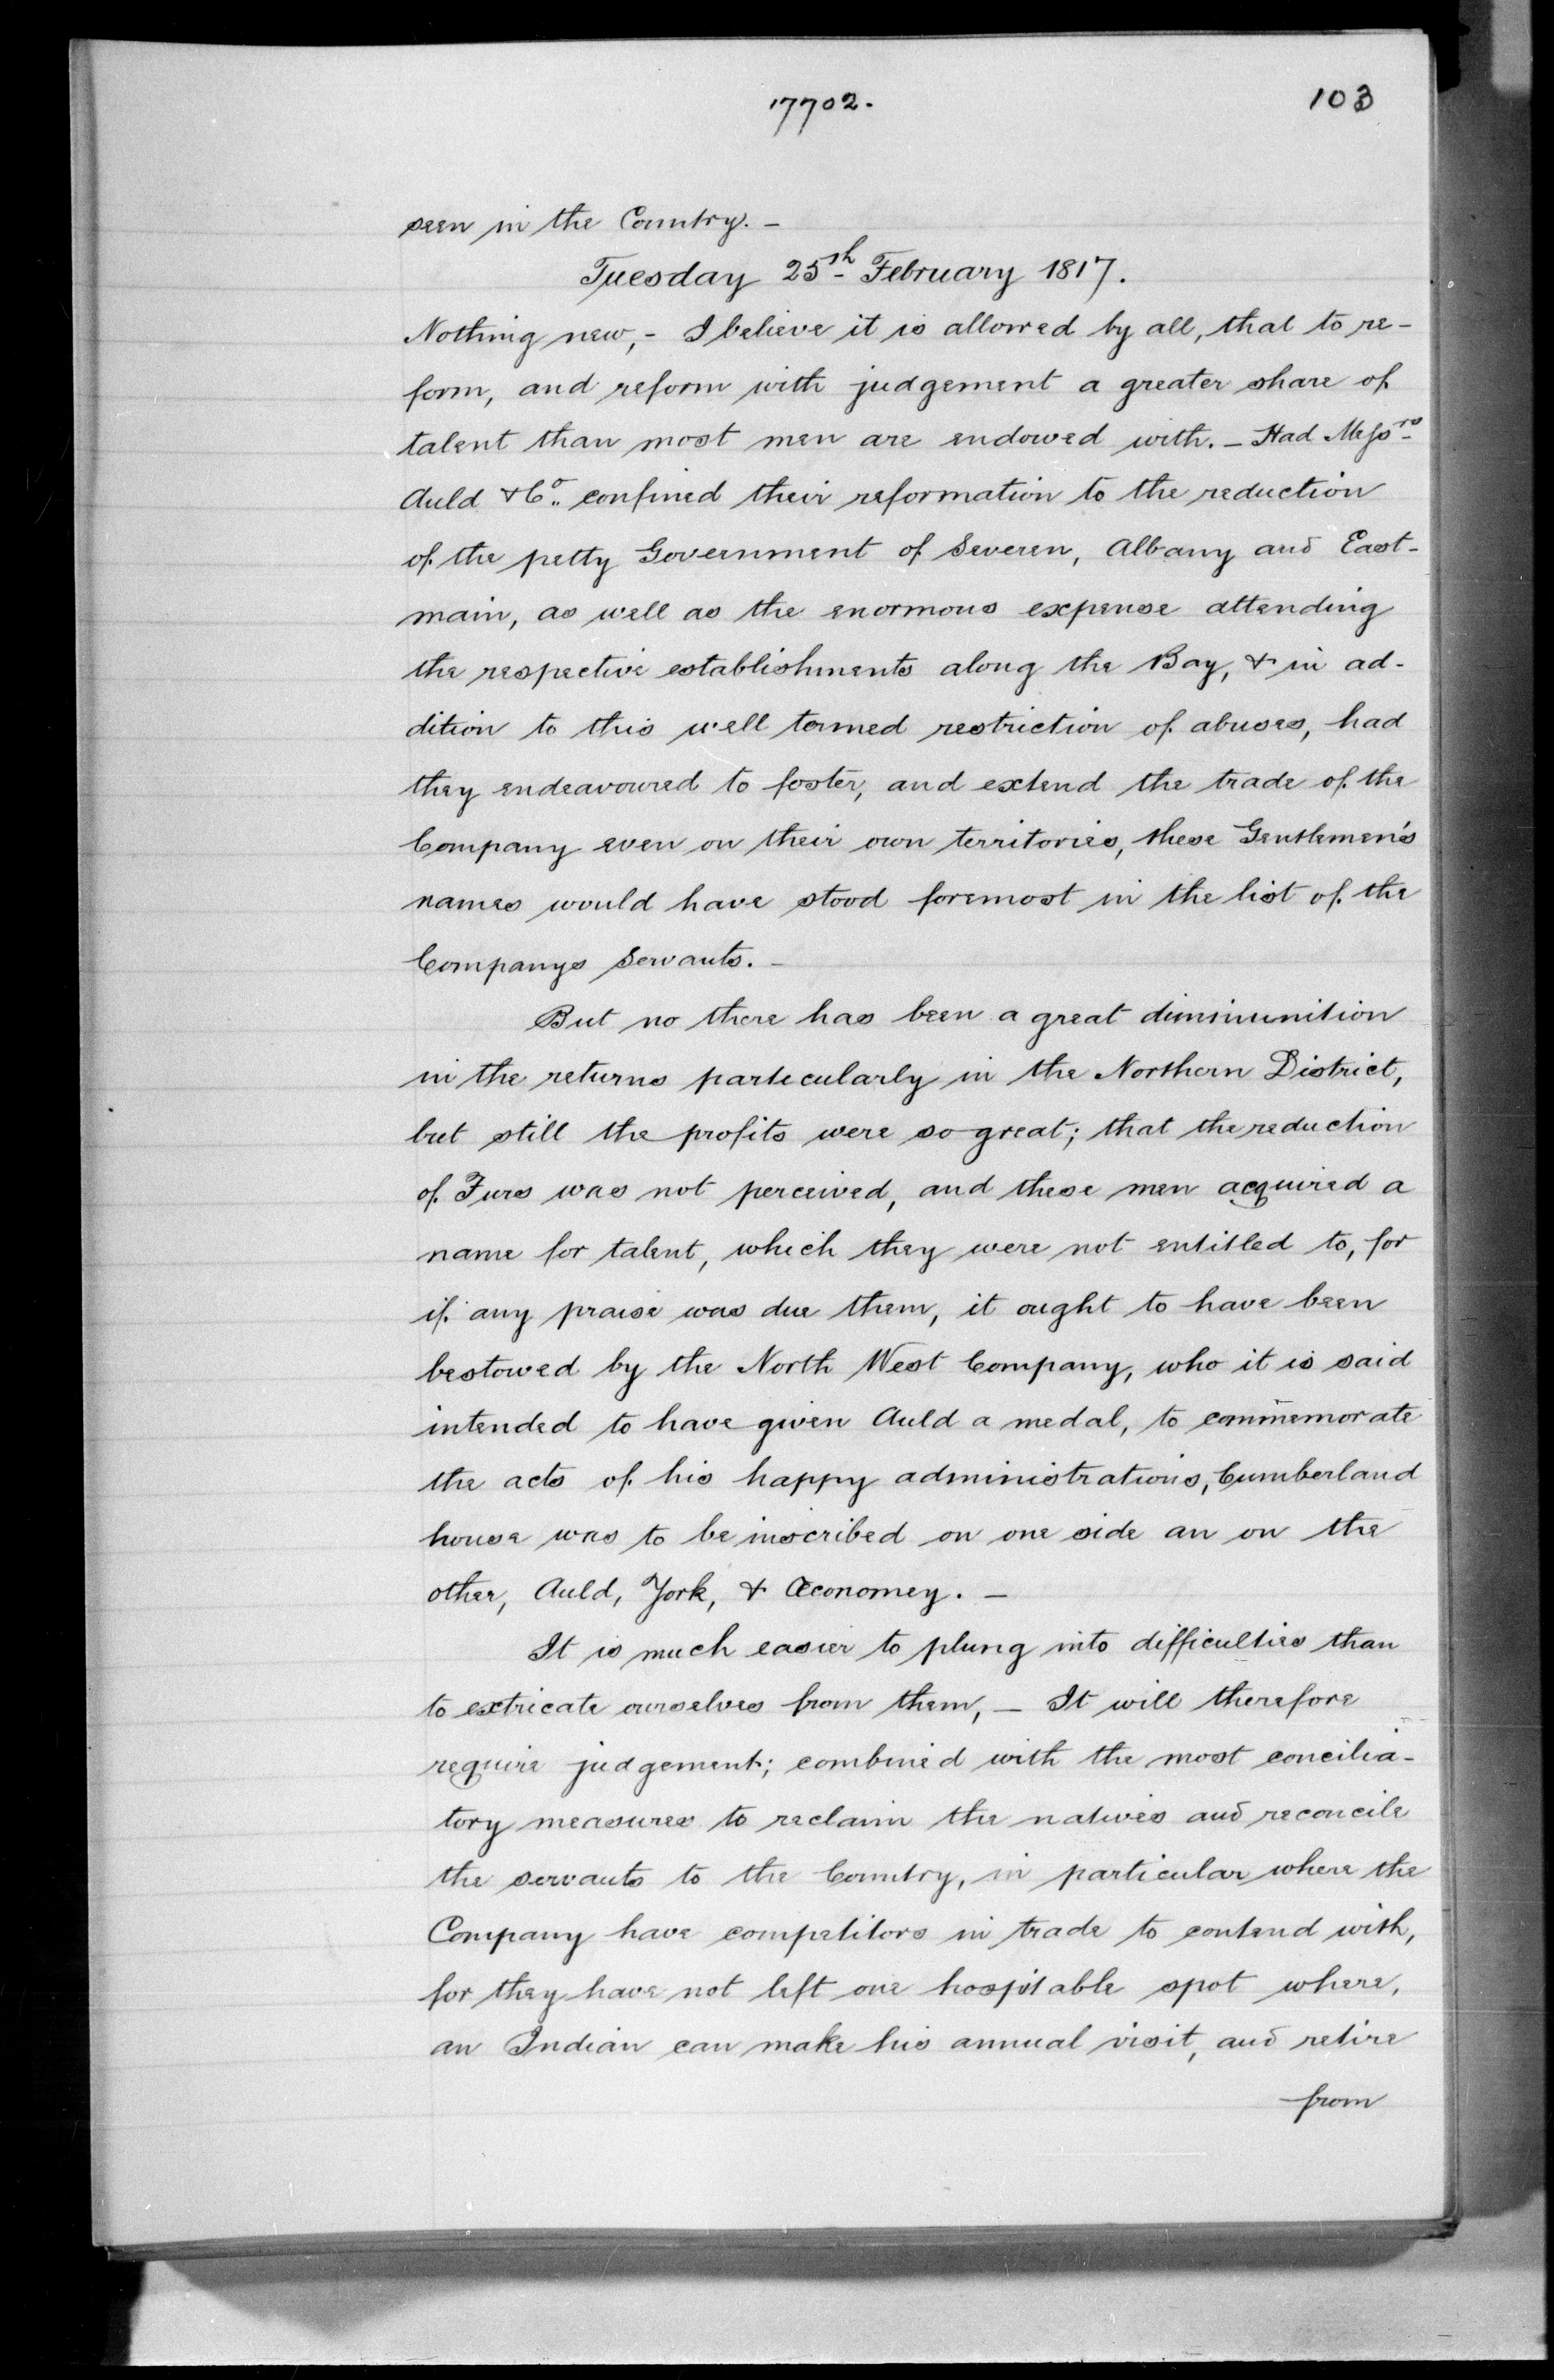 17702.
103
seen in the Country. –
Tuesday 25th February 1817.
Nothing new, – I believe it is allowed by all, that to re-
form, and reform with judgement a greater share of
talent than most men are endowed with. – Had Messrs
Auld & Co. confined their reformation to the reduction
of the petty Government of Severen, Albany and East-
main, as well as the enormous expense attending
the respective establishments along the Bay, & in ad-
dition to this well termed restriction of abuses, had
they endeavoured to foster, and extend the trade of the
Company even on their own territories, these Gentlemen's
names would have stood foremost in the list of the
Companys Servants. –
But no there has been a great diminunition
in the returns particularly in the Northern District,
but still the profits were so great; that the reduction
of Furs was not perceived, and these men acquired a
name for talent, which they were not entitled to, for
if any praise was due them, it ought to have been
bestowed by the North West Company, who it is said
intended to have given Auld a medal, to commemorate
the acts of his happy administrations, Cumberland
house was to be inscribed on one side an on the
other, Auld, York, & Œconomey. –
It is much easier to plung into difficulties than
to extricate ourselves from them, – It will therefore
require judgement; combined with the most concilia-
tory measures to reclaim the natives and reconcile
the servants to the Country, in particular where the
Company have competitors in trade to contend with,
for they have not left one hospitable spot where,
an Indian can make his annual visit, and retire
from